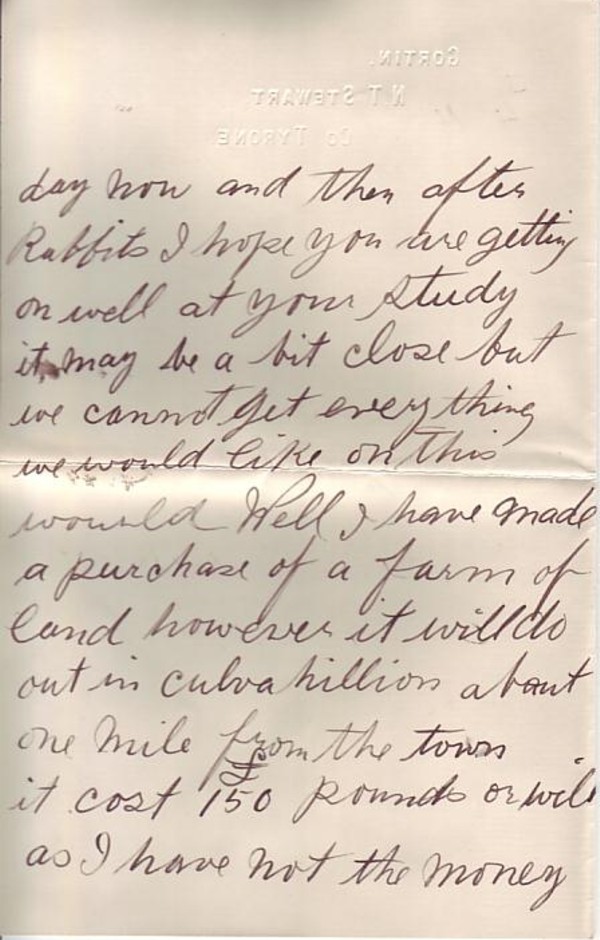 GORTIN.
N T STEWART
CO TYRONE
day now and then after
Rabbits I hope you are getting
on well at your study
it may be a bit close but
we cannot get every thing
we would like on this
wourld Well I have made
a purchase of a farm of
land however it will do
out in culvahillion about
one mile from the town
£
it cost 150 pounds or will
as I have not the money